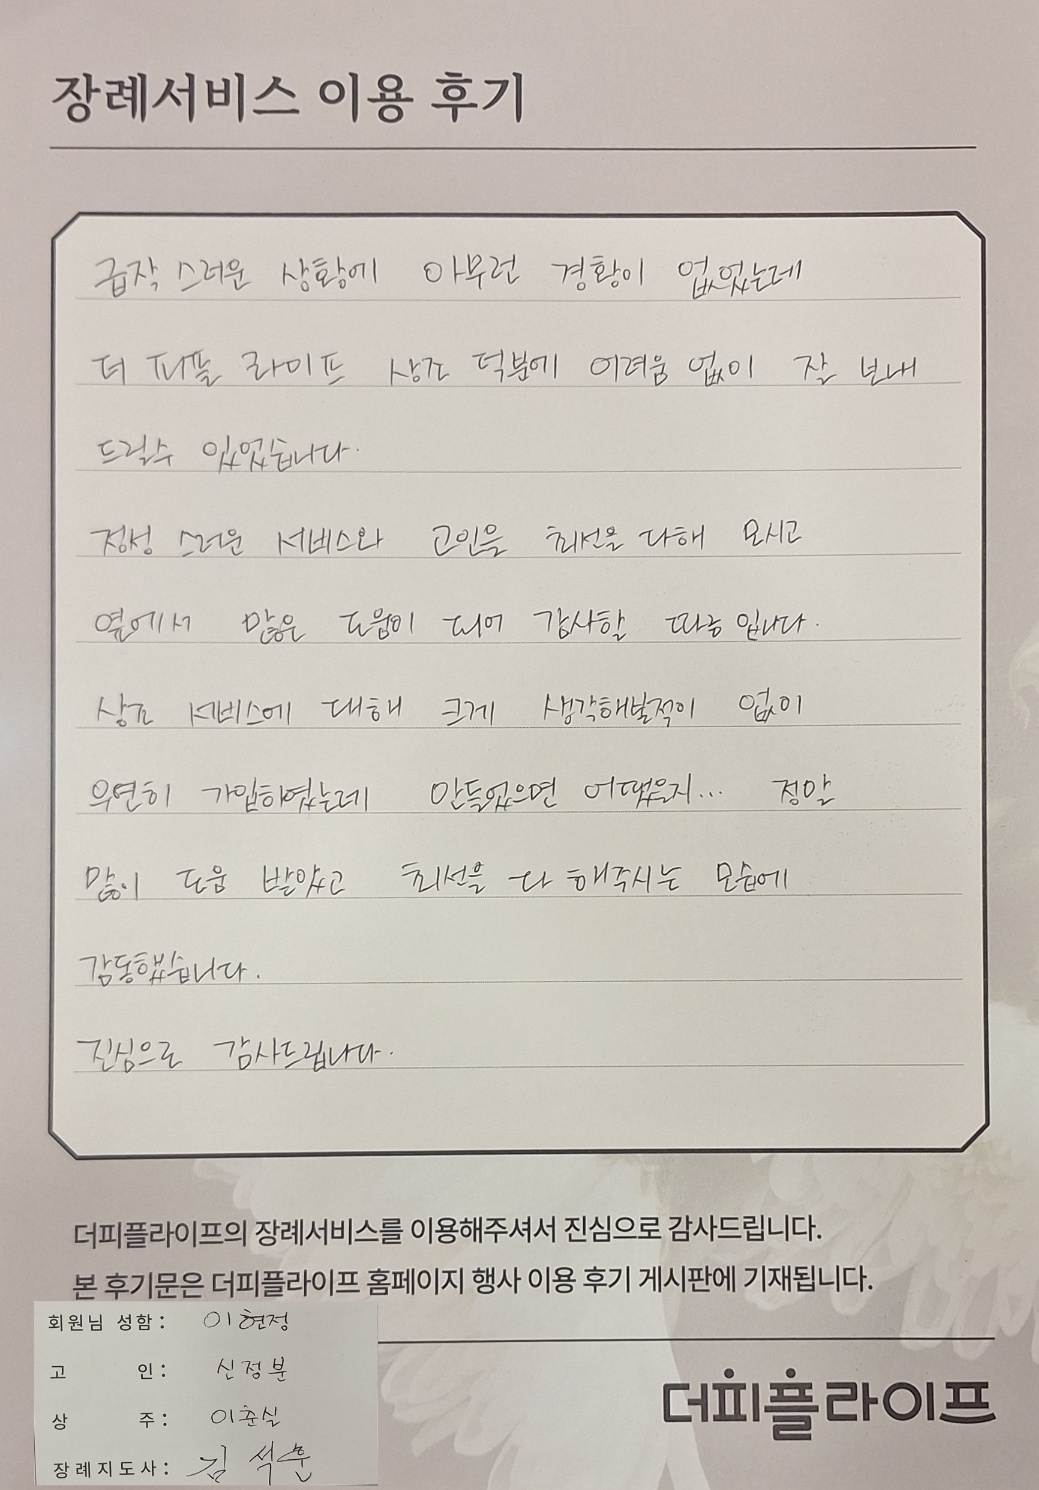 장례서비스 이용 후기
급작 스러운 상황에 아무런 경황이 없었는데
더 피플 라이프 상조 덕분에 어려움 없이 잘 보내
드릴수 있었습니다.
정성 스러운 서비스와 고인을 최선을 다해 모시고
옆에서 많은 도움이 되어 감사할 따름 입니다.
상조 서비스에 대해 크게 생각해본적이 없이
우연히 가입하였는데 안들었으면 어땠을지... 정말
많이 도움 받았고 최선을 다 해주시는 모습에
감동했습니다.
진심으로 감사드립니다.
더피플라이프의 장례서비스를 이용해주셔서 진심으로 감사드립니다.
본 후기문은 더피플라이프 홈페이지 행사 이용 후기 게시판에 기재됩니다.
회원님 성함: 이현정
고 인: 신정분
상 주: 이춘실
장례지도사: 김석훈
더피플라이프